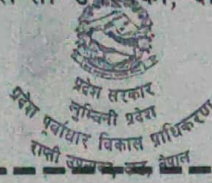 प्रदेश सरकार
लुम्बिनी प्रदेश
प्रदेश पूर्वाधार विकास प्राधिकरण
राप्ती उपत्यका, दाङ, नेपाल